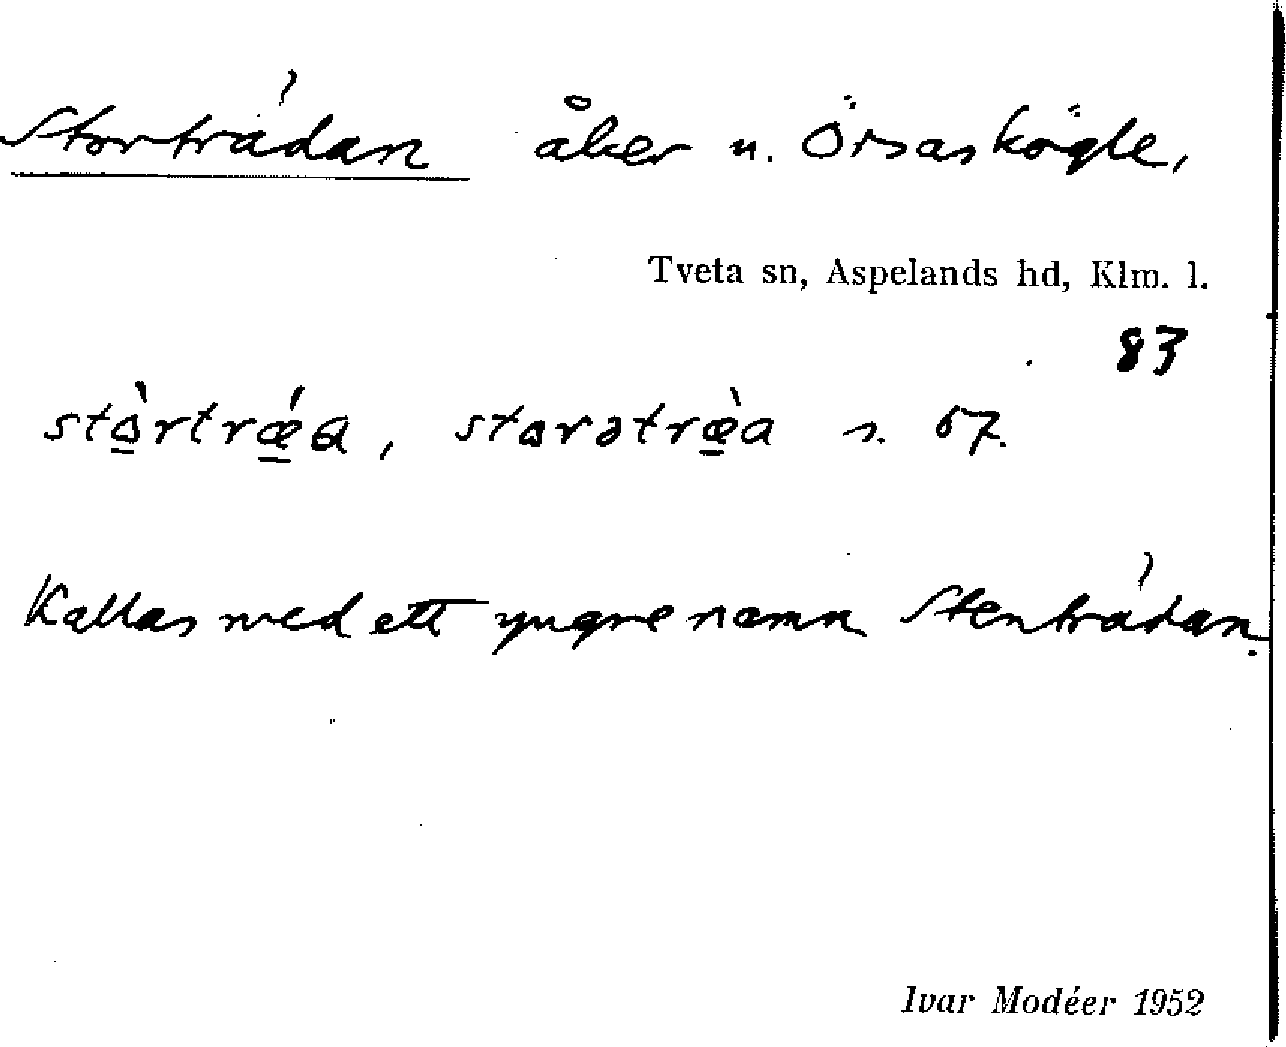 Storträdan åker u. Örsaskögle,
Tveta sn, Aspelands hd, Klm. l.
83
stò̱rtrǽ̱a, storətræ̱̀a s. 57.
Kallas med ett yngre namn Stenträdan.
Ivar Modéer 1952